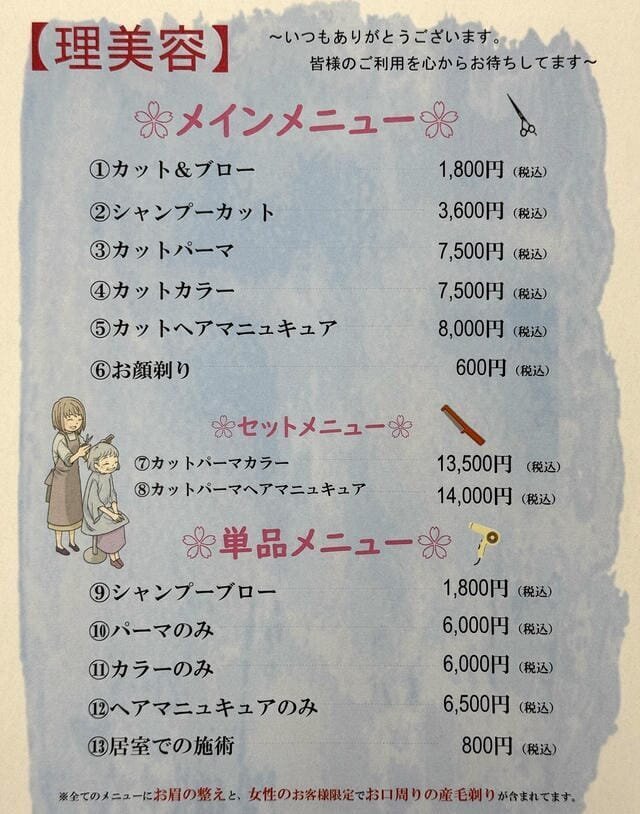 【理美容】
～いつもありがとうございます。
皆様のご利用を心からお待ちしてます～
メインメニュー
①カット＆ブロー 1,800円（税込）
②シャンプーカット 3,600円（税込）
③カットパーマ 7,500円（税込）
④カットカラー 7,500円（税込）
⑤カットヘアマニュキュア 8,000円（税込）
⑥お顔剃り 600円（税込）
セットメニュー
⑦カットパーマカラー 13,500円（税込）
⑧カットパーマヘアマニュキュア 14,000円（税込）
単品メニュー
⑨シャンプーブロー 1,800円（税込）
⑩パーマのみ 6,000円（税込）
⑪カラーのみ 6,000円（税込）
⑫ヘアマニュキュアのみ 6,500円（税込）
⑬居室での施術 800円（税込）
※全てのメニューにお眉の整えと、女性のお客様限定でお口周りの産毛剃りが含まれてます。